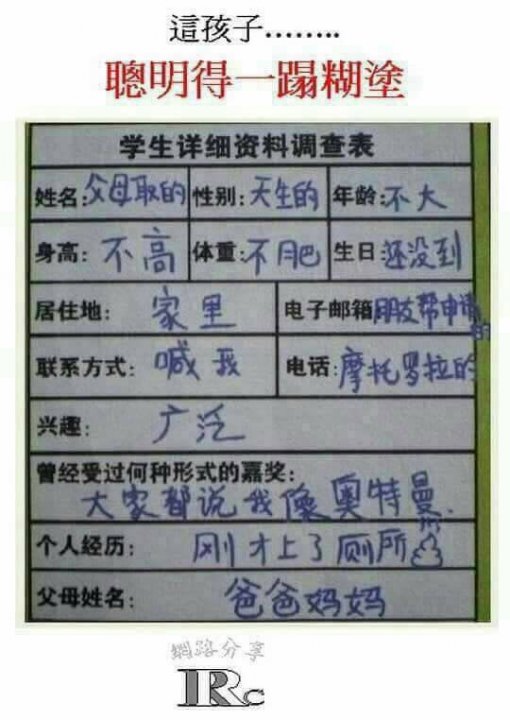 這孩子........
聰明得一蹋糊塗
学生详细资料调查表
姓名:父母取的 性别:天生的 年龄:不大
身高:不高 体重:不肥 生日:还没到
居住地:家里 电子邮箱朋友帮申请的
联系方式:喊我 电话:摩托罗拉的
兴趣:广泛
曾经受过何种形式的嘉奖:
大家都说我像奥特曼.
个人经历:刚才上了厕所
父母姓名:爸爸妈妈
網路分享
IRc